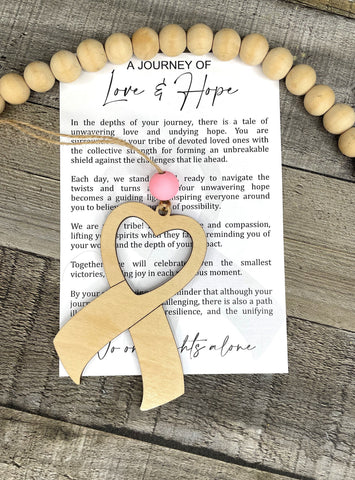 A JOURNEY OF
Love & Hope
In the depths of your journey, there is a tale of
unwavering love and undying hope. You are
surrounded your tribe of devoted loved ones with
the collective strength for forming an unbreakable
shield against the challenges that lie ahead.
Each day, we stand ready to navigate the
twists and turns Your unwavering hope
becomes a guiding inspiring everyone around
you to believe of possibility.
We are tribe! and compassion,
lifting spirits when they reminding you of
your and the depth of your
Together we will celebrate the smallest
victories, joy in each moment.
By your reminder that although your
challenging, there is also a path
resilience, and the unifying
No one alone